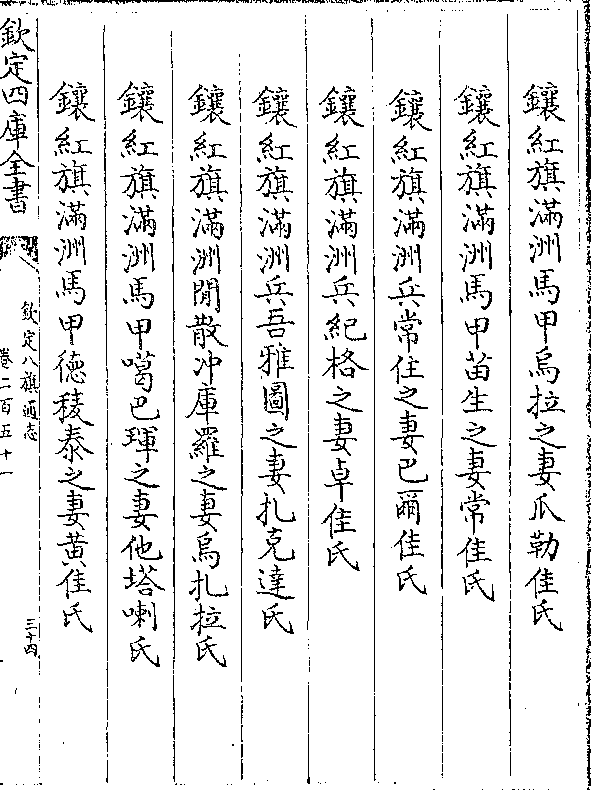 鑲紅旗滿洲馬甲烏拉之妻瓜勒佳氏
鑲紅旗滿洲馬甲苗生之妻常佳氏
鑲紅旗滿洲兵常住之妻巴爾佳氏
鑲紅旗滿洲兵紀格之妻卓佳氏
鑲紅旗滿洲兵吾雅圖之妻扎克達氏
鑲紅旗滿洲閒散冲庫羅之妻烏扎拉氏
鑲紅旗滿洲馬甲噶巴琿之妻他塔喇氏
鑲紅旗滿洲馬甲德稜泰之妻黃佳氏
欽定四庫全書
欽定八旗通志
卷二百五十一
三十四